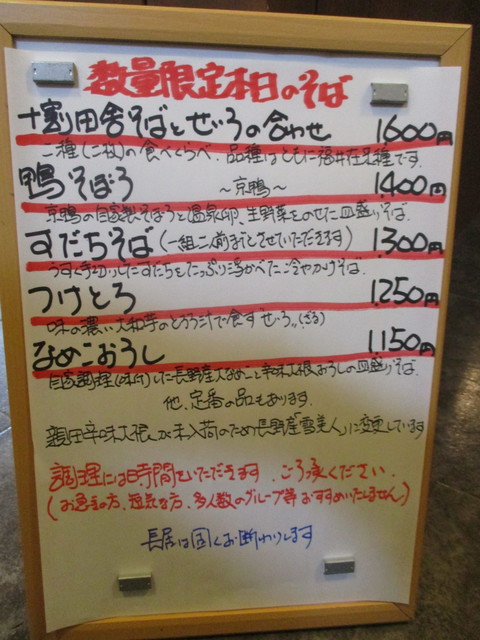 数量限定本日のそば
十割田舎そばとせいろの合わせ 1600円
二種(二枚)の食べくらべ、品種はともに福井在来種です。
鴨そぼろ 〜京鴨〜 1400円
京鴨の自家製そぼろと温泉卵、生野菜をのせた皿盛りそば。
すだちそば(一組二人前までとさせていただきます) 1300円
うすく手切りしたすだちをたっぷり浮かべた冷やかけそば。
つけとろ 1250円
味の濃い大和芋のとろろ汁で食すせいろ。(ざる)
なめこおろし 1150円
自家調理(味付)した長野産大なめこと辛味大根おろしの皿盛りそば
他、定番の品もあります。
親田辛味大根が未入荷のため長野産「雪美人」に変更しています
調理にはお時間をいただきます。ご了承ください。
(お急ぎの方、短気な方、多人数のグループ等おすすめいたしません)
長居は固くお断わりします